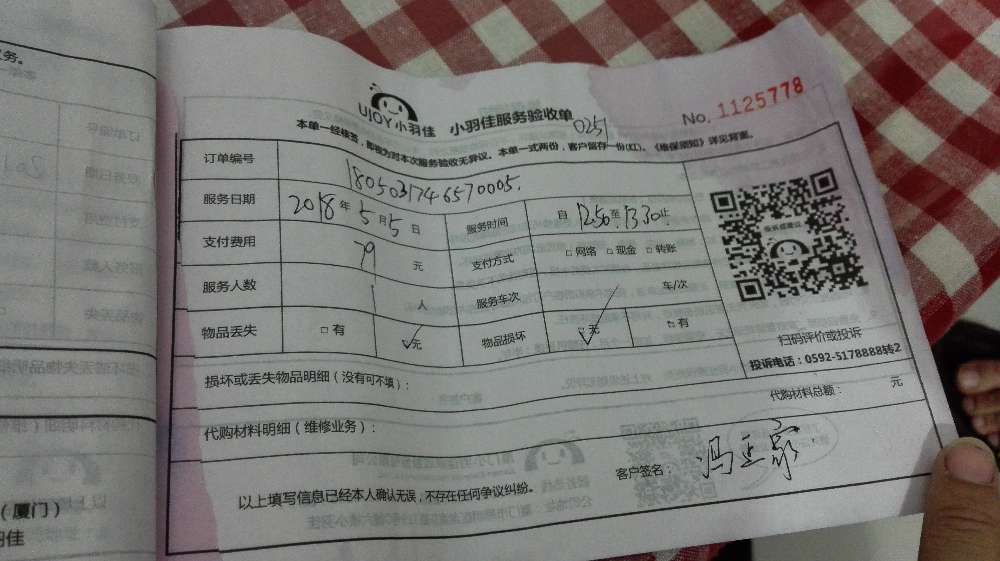 UJOY小羽佳 小羽佳服务验收单
No. 1125778
0251
本单一经核签，即视为对本次服务验收无异议。本单一式两份，客户留存一份(红)。《维保须知》详见背面。
订单编号 1805031746570005.
服务日期 2018年5月5日 服务时间 自12:50至13:30止
支付费用 79元 支付方式 □网络 □现金 □转账
服务人数 1人 服务车次 车/次
物品丢失 □有 ✓无 物品损坏 ✓无 □有
扫码评价或投诉
投诉电话：0592-5178888转2
损坏或丢失物品明细（没有可不填）：
代购材料明细（维修业务）：
代购材料总额： 元
以上填写信息已经本人确认无误，不存在任何争议纠纷。
客户签名：冯正家
务。
（厦门）
羽佳